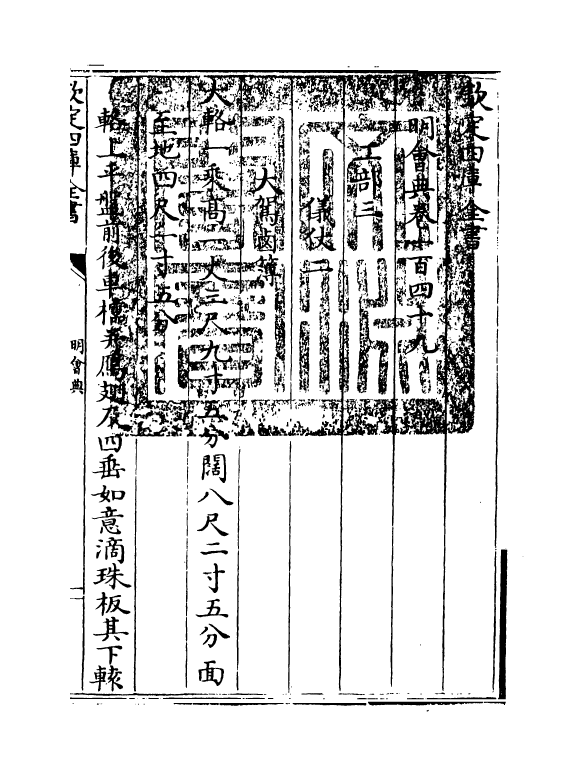 欽定四庫全書
明會典卷一百四十九
工部三
儀仗二
大駕鹵簿
大輅一乘高一丈三尺九寸五分闊八尺二寸五分面
至地四尺一寸五分
輅上平盤前後車櫺并鴈翅及四垂如意滴珠板其下轅
欽定四庫全書
明會典